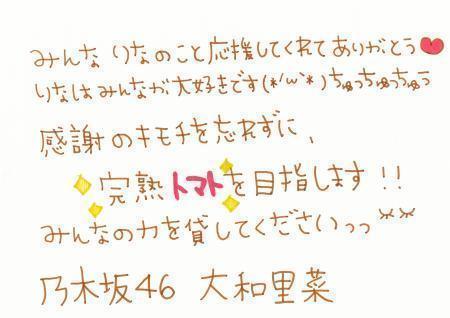 みんな りなのこと応援してくれてありがとう❤
りなはみんなが大好きです(*'ω`*)ちゅっちゅっちゅぅ
感謝のキモチを忘れずに、
完熟トマトを目指します!!
みんなの力を貸してくださいっっ
乃木坂46 大和里菜